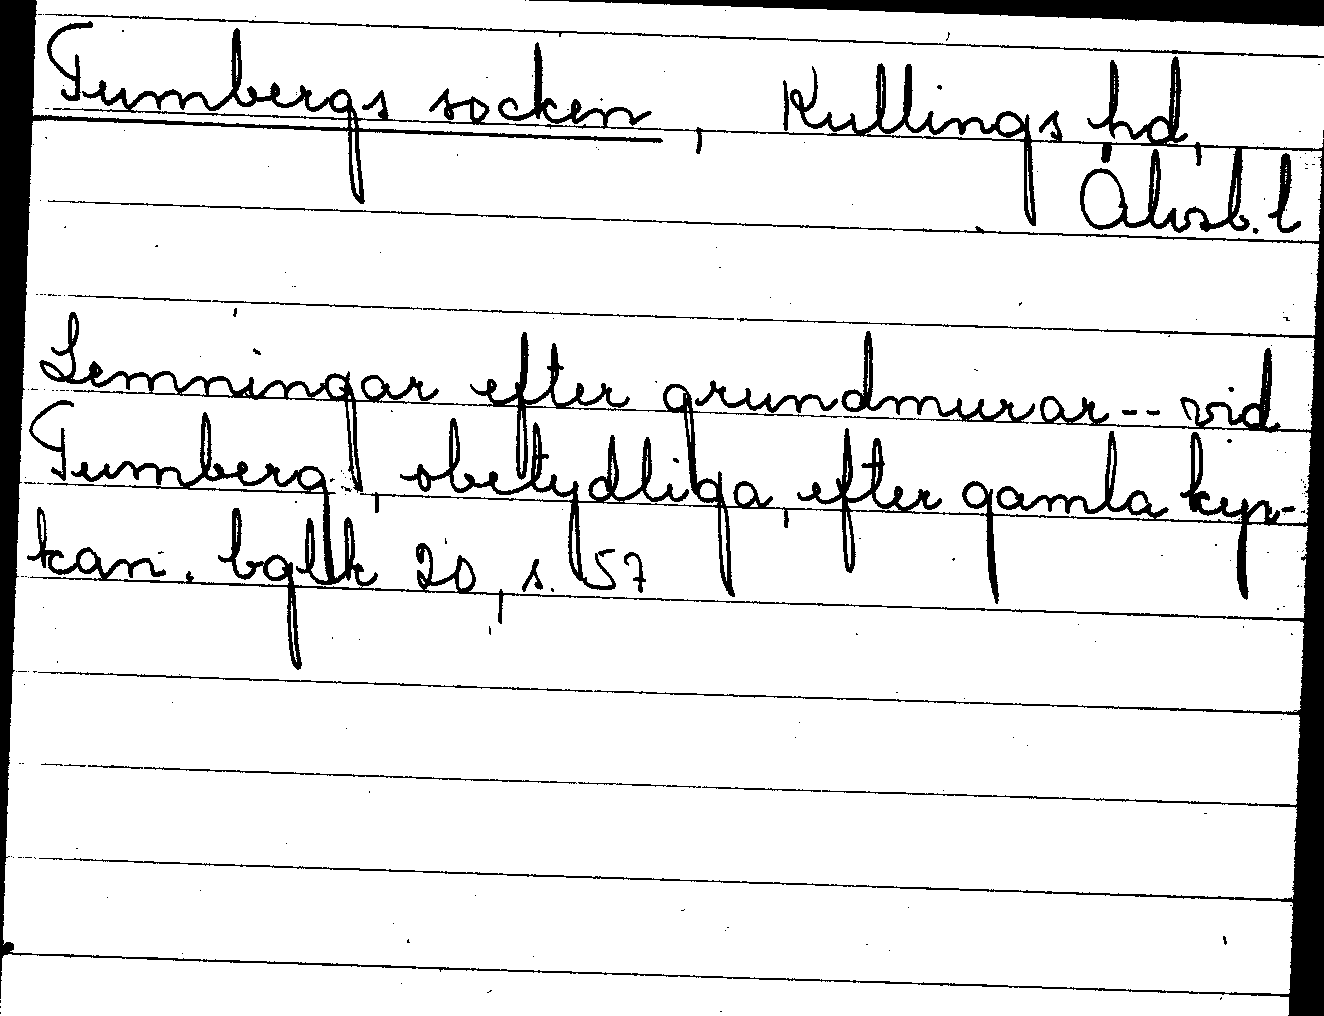 Tumbergs socken, Kullings hd,
Älvsb. l
Lemningar efter grundmurar -- vid
Tumberg, obetydliga, efter gamla kyr-
kan. bqllk 20, s. 57